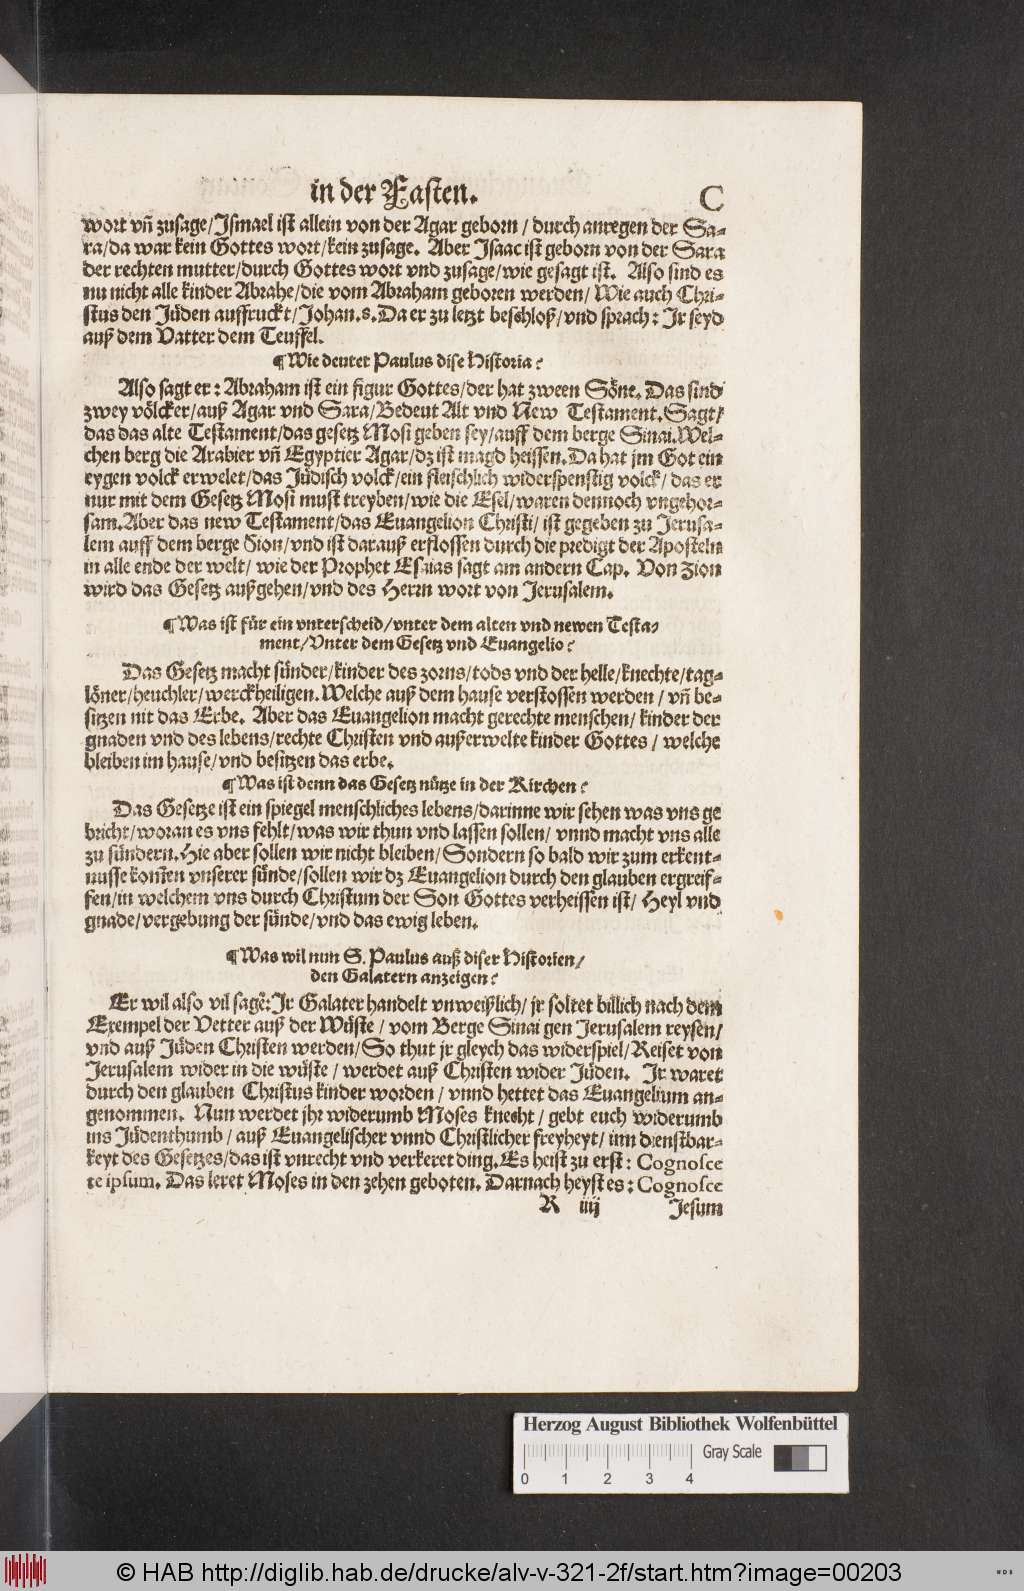 in der Fasten. C
wort vñ zusage/Ismael ist allein von der Agar geborn / durch anregen der Sa-
ra/da war kein Gottes wort/kein zusage. Aber Isaac ist geborn von der Sara
der rechten mutter/durch Gottes wort vnd zusage/wie gesagt ist. Also sind es
nu nicht alle kinder Abrahe/die vom Abraham geboren werden/ Wie auch Chri-
stus den Jüden auffruckt/Johan.8. Da er zu letzt beschloß/vnd sprach: Jr seyd
auß dem Vatter dem Teuffel.
¶ Wie deutet Paulus dise Historia?
Also sagt er: Abraham ist ein figur Gottes/der hat zween Söne. Das sind
zwey völcker/auß Agar vnd Sara/Bedeut Alt vnd New Testament. Sagt/
das das alte Testament/das gesetz Mosi geben sey/auff dem berge Sinai. Wel-
chen berg die Arabier vñ Egyptier Agar/dz ist magd heissen. Da hat jm Got ein
eygen volck erwelet/das Jüdisch volck/ein fleischlich widerspenstig volck/ das er
nur mit dem Gesetz Mosi must treyben/wie die Esel/waren dennoch vngehor-
sam. Aber das new Testament/das Euangelion Christi/ ist gegeben zu Jerusa-
lem auff dem berge Sion/vnd ist darauß erflossen durch die predigt der Aposteln
in alle ende der welt/ wie der Prophet Esaias sagt am andern Cap. Von Zion
wird das Gesetz außgehen/vnd des Herrn wort von Jerusalem.
¶ Was ist für ein vnterscheid/vnter dem alten vnd newen Testa-
ment/Vnter dem Gesetz vnd Euangelio?
Das Gesetz macht sünder/kinder des zorns/tods vnd der helle/knechte/tag-
löner/heuchler/werckheiligen. Welche auß dem hause verstossen werden / vñ be-
sitzen nit das Erbe. Aber das Euangelion macht gerechte menschen/ kinder der
gnaden vnd des lebens/rechte Christen vnd außerwelte kinder Gottes / welche
bleiben im hause/vnd besitzen das erbe.
¶ Was ist denn das Gesetz nütze in der Kirchen?
Das Gesetze ist ein spiegel menschliches lebens/darinne wir sehen was vns ge
bricht/woran es vns fehlt/was wir thun vnd lassen sollen/ vnnd macht vns alle
zu sündern. Hie aber sollen wir nicht bleiben/Sondern so bald wir zum erkent-
nusse kom̃en vnserer sünde/sollen wir dz Euangelion durch den glauben ergreif-
fen/in welchem vns durch Christum der Son Gottes verheissen ist/ Heyl vnd
gnade/vergebung der sünde/vnd das ewig leben.
¶ Was wil nun S. Paulus auß diser Historien/
den Galatern anzeigen?
Er wil also vil sagẽ: Jr Galater handelt vnweißlich/ jr soltet billich nach dem
Exempel der Vetter auß der Wüste / vom Berge Sinai gen Jerusalem reysen/
vnd auß Jüden Christen werden/So thut jr gleych das widerspiel/Reiset von
Jerusalem wider in die wüste / werdet auß Christen wider Jüden. Jr waret
durch den glauben Christus kinder worden / vnnd hettet das Euangelium an-
genommen. Nun werdet jhr widerumb Moses knecht / gebt euch widerumb
ins Jüdenthumb / auß Euangelischer vnnd Christlicher freyheyt/ inn dienstbar-
keyt des Gesetzes/das ist vnrecht vnd verkeret ding. Es heist zu erst: Cognosce
te ipsum. Das leret Moses in den zehen geboten. Darnach heyst es: Cognosce
R iiij Jesum
Herzog August Bibliothek Wolfenbüttel
Gray Scale
0 1 2 3 4
© HAB http://diglib.hab.de/drucke/alv-v-321-2f/start.htm?image=00203